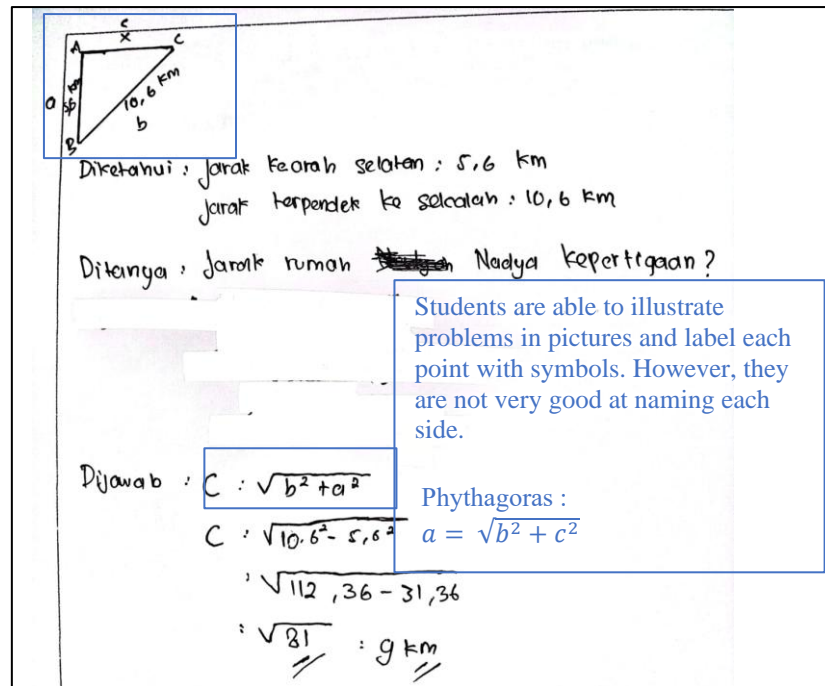 c
x
A C
a 5,6 km 10,6 km
b
B
Diketahui : jarak kearah selatan : 5,6 km
jarak terpendek ke sekolah : 10,6 km
Ditanya : Jarak rumah Nadya kepertigaan?
Students are able to illustrate
problems in pictures and label each
point with symbols. However, they
are not very good at naming each
side.
Phythagoras :
a = √b² + c²
Dijawab : C : √b² + a²
C : √10.6² - 5,6²
: √112,36 - 31,36
: √81 : 9 km